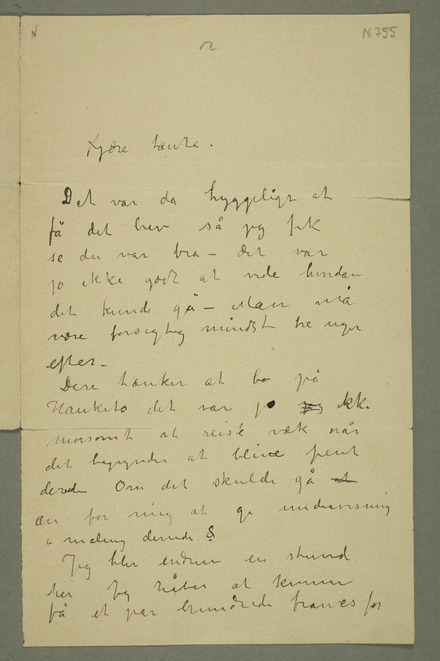 N
N 755
Kjære tante.
Det var da hyggeligt at
få det brev så jeg fik
se du var bra – det var
jo ikke godt at vide hvordan
det kunde gå – Man må
være forsegtig mindst tre uger
efter.
Dere tænker at bo på
Hankitø det var jo ikke
morsomt at reise væk når
det begynder at blive pent
dere Om det skulde gå
an for mig at gi undervisning
i maling derude
Jeg blir endnu en stund
her Jeg håber at kunne
få et par hundrede francs for